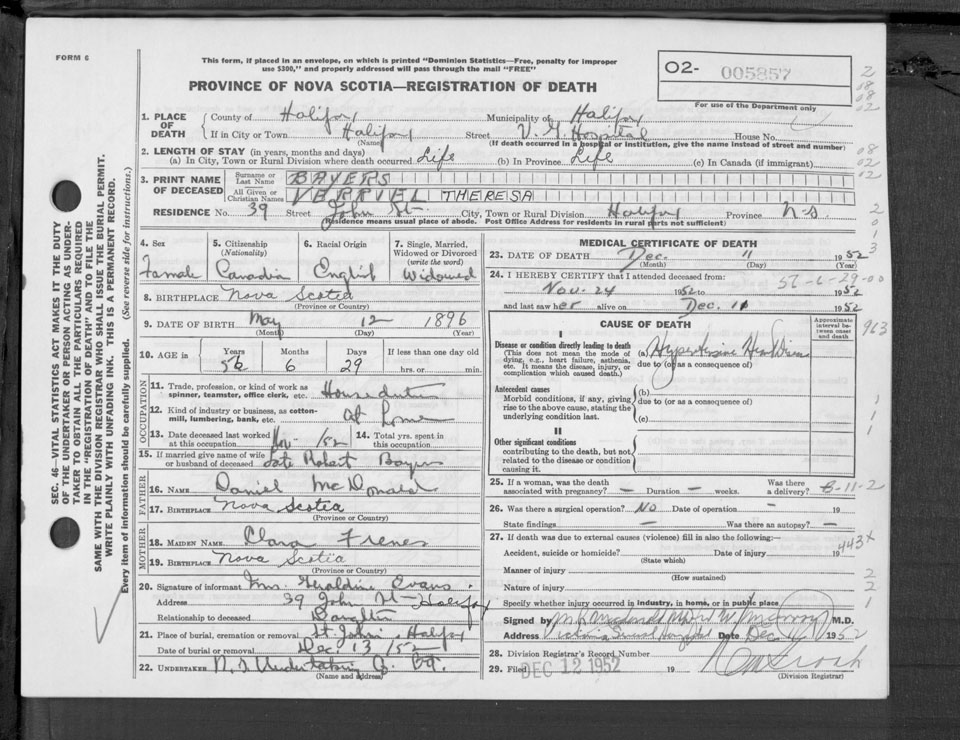 FORM 6
This form, if placed in an envelope, on which is printed "Dominion Statistics—Free, penalty for improper
use $300," and properly addressed will pass through the mail "FREE"
PROVINCE OF NOVA SCOTIA—REGISTRATION OF DEATH
O2- 005857
For use of the Department only
1. PLACE OF DEATH
County of Halifax Municipality of Halifax
If in City or Town Halifax Street V. G. Hospital House No.
(Name) (If death occurred in a hospital or institution, give the name instead of street and number)
2. LENGTH OF STAY (in years, months and days)
(a) In City, Town or Rural Division where death occurred Life (b) In Province Life (c) In Canada (if immigrant)
3. PRINT NAME OF DECEASED
Surname or Last Name BAYERS
All Given or Christian Names VERRIEL THERESA
RESIDENCE No. 39 Street John St. City, Town or Rural Division Halifax Province N.S.
(Residence means usual place of abode. Post Office Address for residents in rural parts not sufficient)
4. Sex
Female
5. Citizenship
(Nationality)
Canadian
6. Racial Origin
English
7. Single, Married, Widowed or Divorced
(write the word)
Widowed
8. BIRTHPLACE Nova Scotia
(Province or Country)
9. DATE OF BIRTH May 12 1896
(Month) (Day) (Year)
10. AGE in
Years Months Days If less than one day old
56 6 29 hrs. or min.
OCCUPATION
11. Trade, profession, or kind of work as spinner, teamster, office clerk, etc. House duties
12. Kind of industry or business, as cotton-mill, lumbering, bank, etc. at home
13. Date deceased last worked at this occupation Nov- /52
14. Total yrs. spent in this occupation
15. If married give name of wife or husband of deceased Late Robert Bayers
FATHER
16. NAME Daniel McDonald
17. BIRTHPLACE Nova Scotia
(Province or Country)
MOTHER
18. MAIDEN NAME Clara
19. BIRTHPLACE Nova Scotia
(Province or Country)
20. Signature of informant Mrs. Geraldine Evans
Address 39 John St- Halifax
Relationship to deceased Daughter
21. Place of burial, cremation or removal St. John's, Halifax
Date of burial or removal Dec. 13/52
22. UNDERTAKER N.S Undertaking Co.
(Name and address)
MEDICAL CERTIFICATE OF DEATH
23. DATE OF DEATH Dec. 11 1952
(Month) (Day) (Year)
24. I HEREBY CERTIFY that I attended deceased from:
56-6-29-00
Nov. 24 1952 to 1952
and last saw her alive on Dec. 11 1952
CAUSE OF DEATH
Approximate interval between onset and death
I
Disease or condition directly leading to death
(This does not mean the mode of dying, e.g., heart failure, asthenia, etc. It means the disease, injury, or complication which caused death.)
(a) Hypertensive Heart Disease
due to (or as a consequence of)
Antecedent causes
Morbid conditions, if any, giving rise to the above cause, stating the underlying condition last.
(b)
due to (or as a consequence of)
(c)
II
Other significant conditions
contributing to the death, but not related to the disease or condition causing it.
25. If a woman, was the death associated with pregnancy? — Duration — weeks. Was there a delivery? 8-11-2
26. Was there a surgical operation? NO Date of operation — 19
State findings — Was there an autopsy? —
27. If death was due to external causes (violence) fill in also the following:—
443x
Accident, suicide or homicide? Date of injury 19
(State which)
Manner of injury
(How sustained)
Nature of injury
Specify whether injury occurred in industry, in home, or in public place
Signed by M.D.
Address Victoria General Hospital Date Dec 1952
28. Division Registrar's Record Number
29. Filed DEC 12 1952 19
(Division Registrar)
SEC. 46—VITAL STATISTICS ACT MAKES IT THE DUTY
OF THE UNDERTAKER OR PERSON ACTING AS UNDER-
TAKER TO OBTAIN ALL THE PARTICULARS REQUIRED
IN THE "REGISTRATION OF DEATH" AND TO FILE THE
SAME WITH THE DIVISION REGISTRAR WHO SHALL ISSUE THE BURIAL PERMIT.
WRITE PLAINLY WITH UNFADING INK. THIS IS A PERMANENT RECORD.
Every item of information should be carefully supplied. (See reverse side for instructions.)
2
08
08
02
08
02
02
2
0
1
3
963
1
1
1
2
2
1